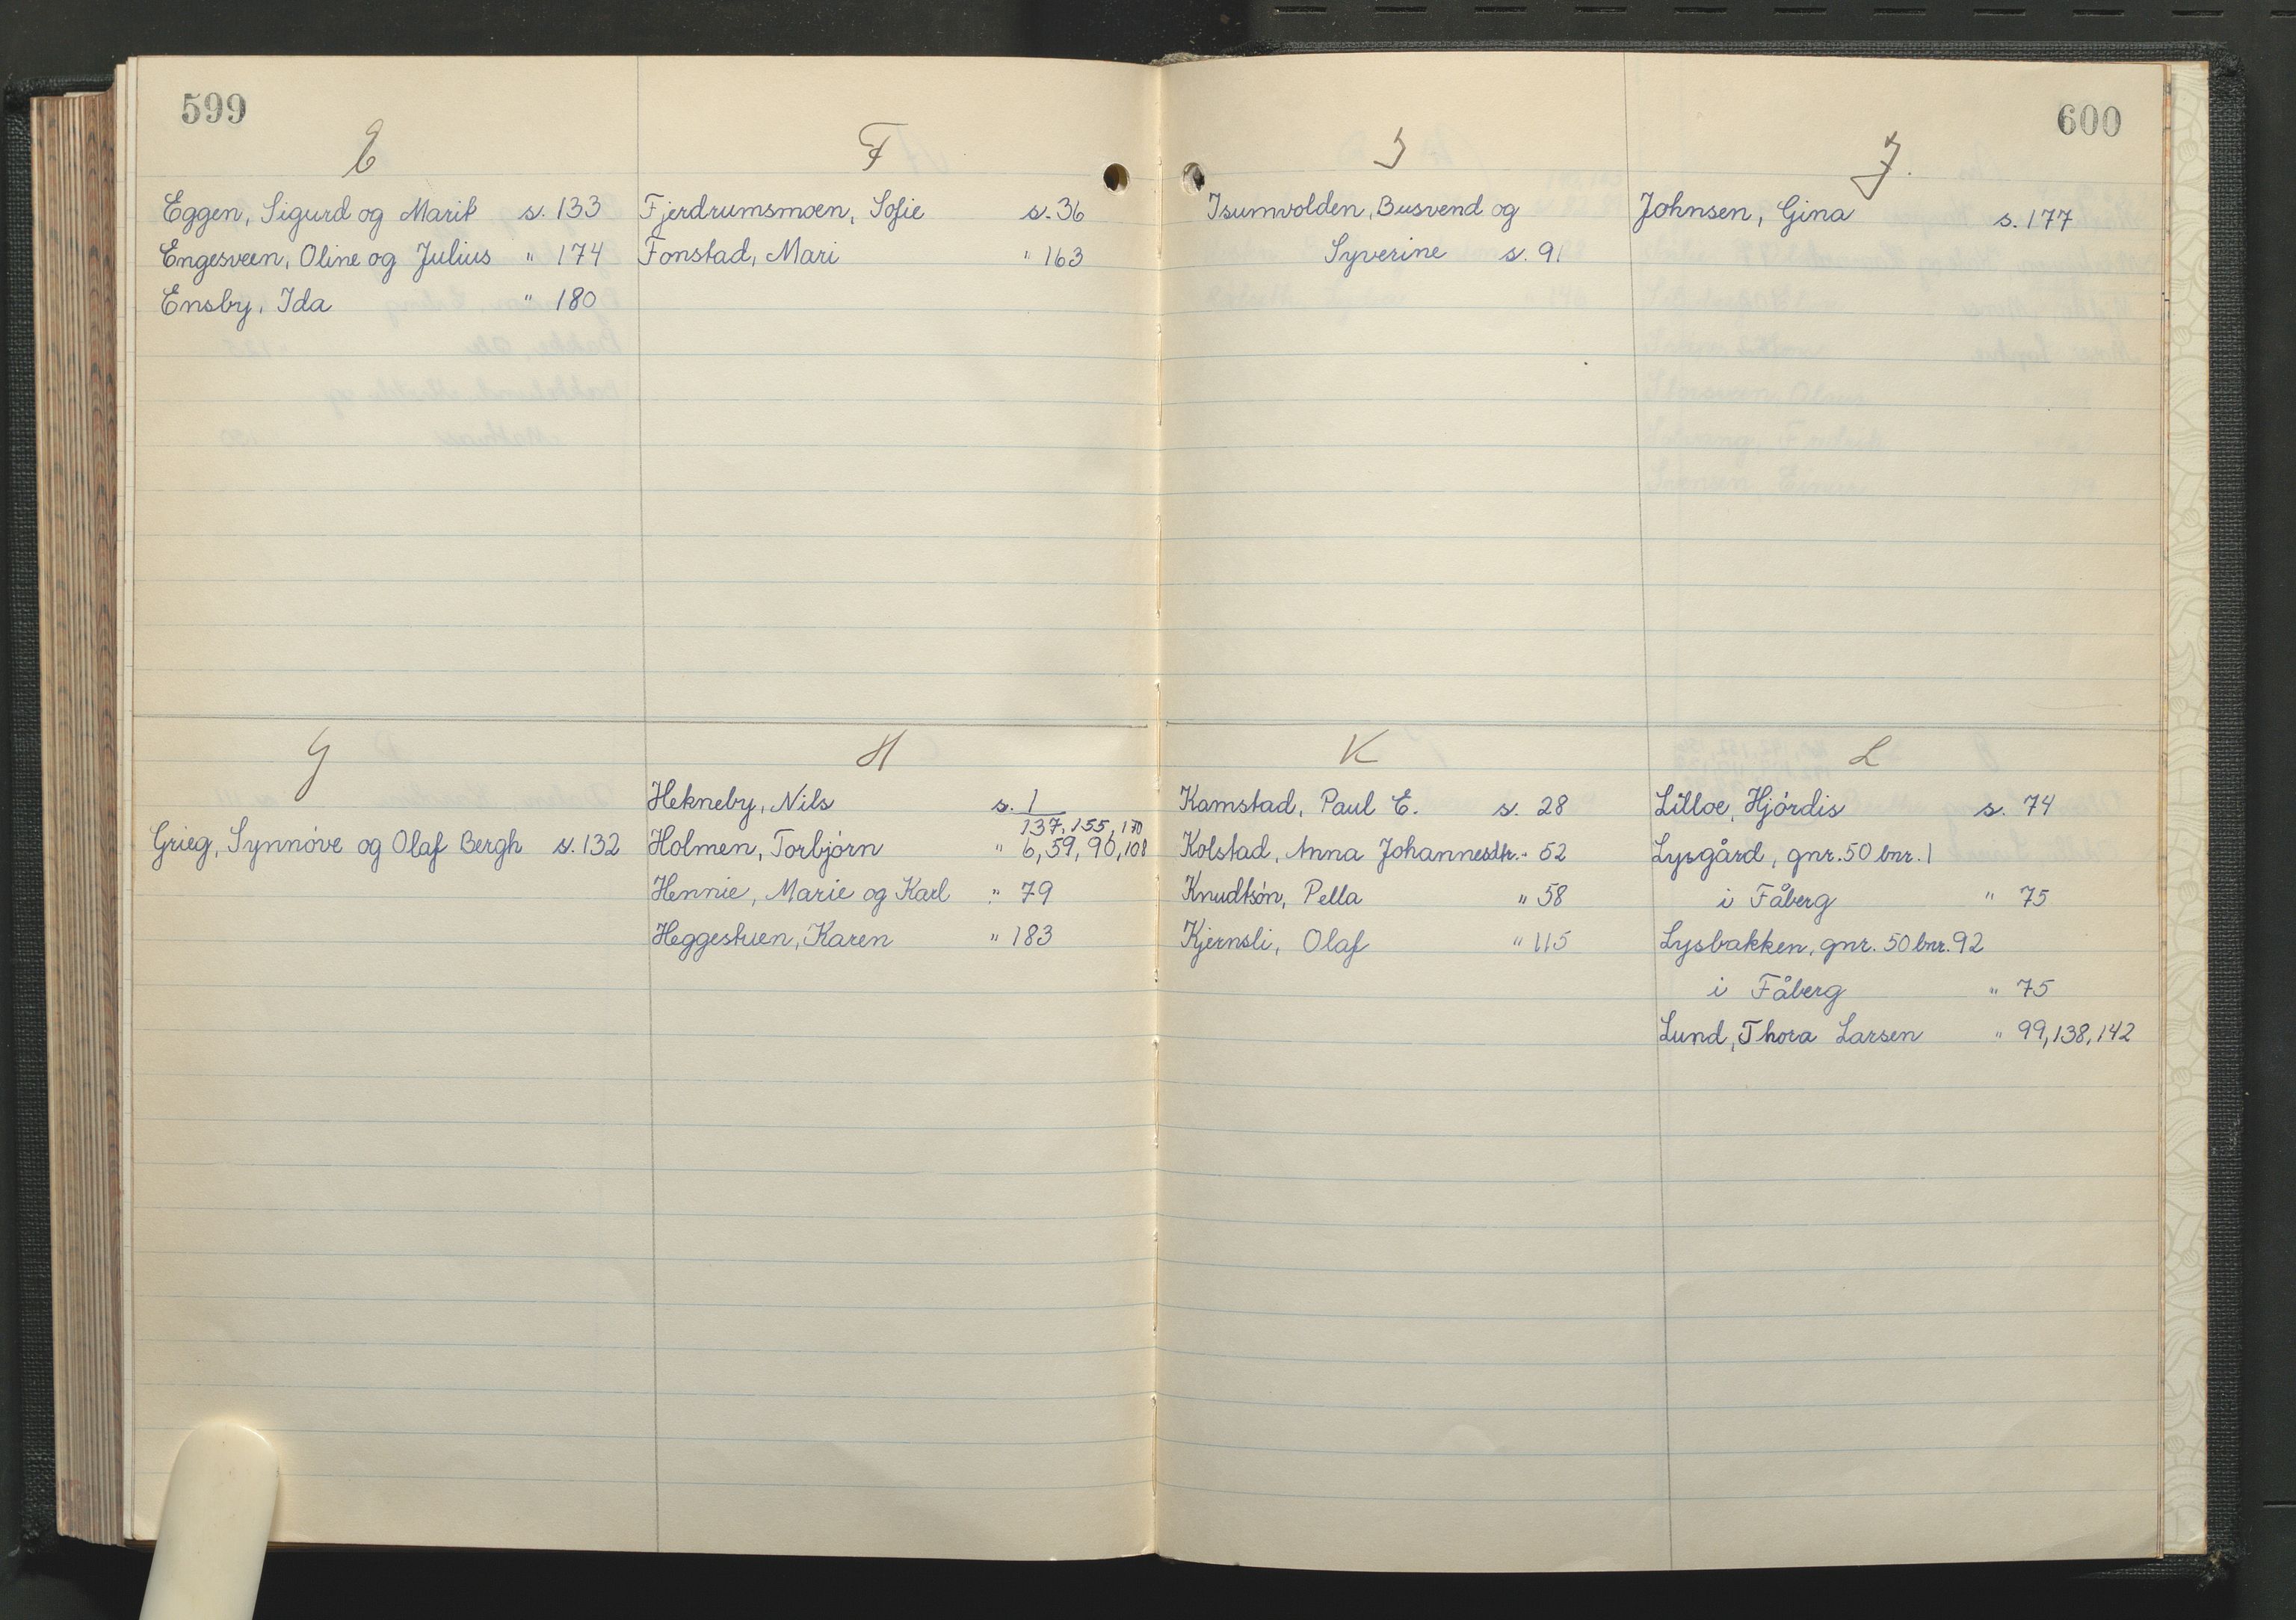 599
E
Eggen, Sigurd og Marit s. 133
Engesveen, Oline og Julius " 174
Ensby, Ida " 180
F
Fjerdrumsmoen, Sofie s. 36
Fonstad, Mari " 163
G
Grieg, Synnöve og Olaf Bergh s. 132
H
Hekneby, Nils s. 1
137, 155, 170
Holmen, Torbjörn " 6, 59, 90, 108
Hennie, Marie og Karl " 79
Heggestuen, Karen " 183
600
I
Isumvolden, Busvend og
Syverine s. 91
J.
Johnsen, Gina s. 177
K
Kamstad, Paul E. s. 28
Kolstad, Anna Johannesdtr. " 52
Knudtsön, Pella " 58
Kjernsli, Olaf " 115
L
Lilloe, Hjördis s. 74
Lysgård, gnr. 50 bnr. 1
i Fåberg " 75
Lysbakken, gnr. 50 bnr. 92
i Fåberg " 75
Lund, Thora Larsen " 99, 138, 142